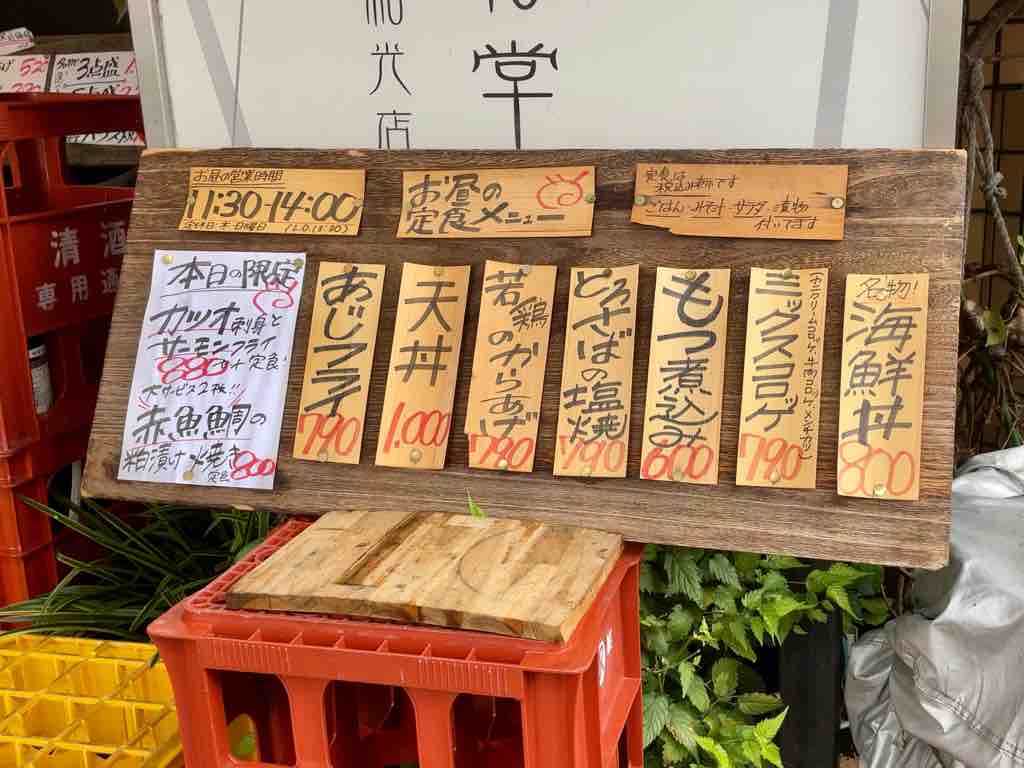 堂
光店
お昼の営業時間
11:30-14:00
お昼の
定食メニュー
定食は
税込み表示です
ごはん みそ汁 サラダ 漬物
付いてます
本日の限定
カツオ刺身と
サーモンフライ
880 定食
大サービス2枚!!
赤魚鯛の
粕漬け焼き
定食 800
あじフライ
790
天丼
1.000
若鶏のからあげ
790
とろさばの塩焼
790
もつ煮込み
600
ミックスコロッケ
790
名物!
海鮮丼
800
清酒
専用
3点盛